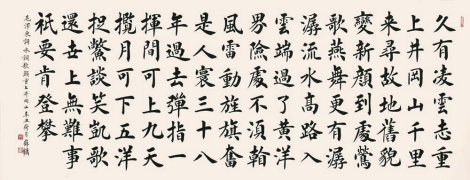 久有凌雲志重
上井岡山千里
来尋故地舊貌
變新顔到處鶯
歌燕舞更有潺
潺流水髙路入
雲端過了黄洋
界險處不湏看
風雷動旌旗奮
是人寰三十八
年過去彈指一
揮間可上九天
攬月可下五洋
捉鱉談笑凱歌
還世上無難事
衹要肯登攀
毛澤東詩水調歌頭重上井岡山